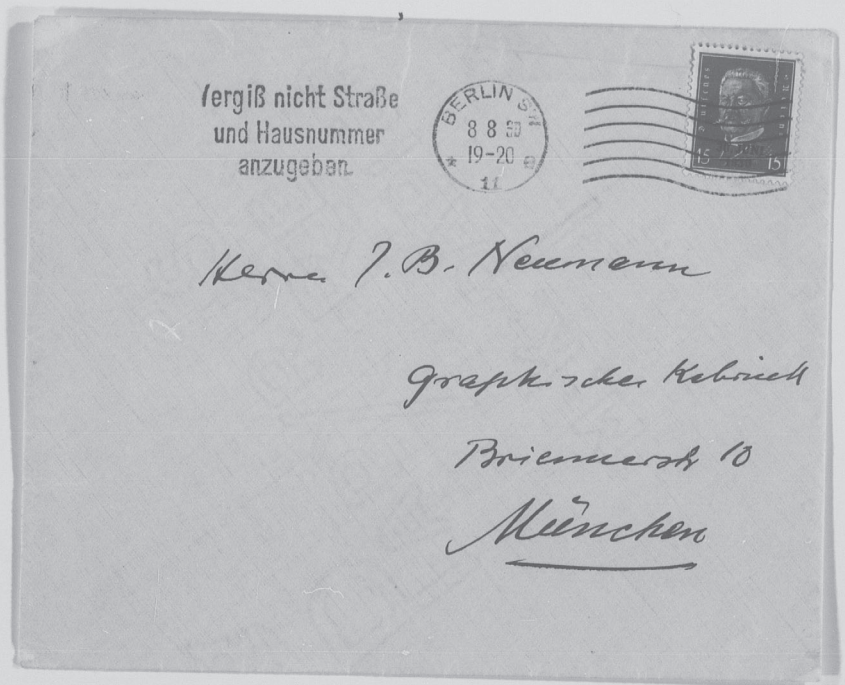 Vergiß nicht Straße
und Hausnummer
anzugeben.
BERLIN SW
8 8 30
19-20
* 11 e
15 15
Herrn J. B. Neumann
Graphisches Kabinett
Briennerstr 10
München